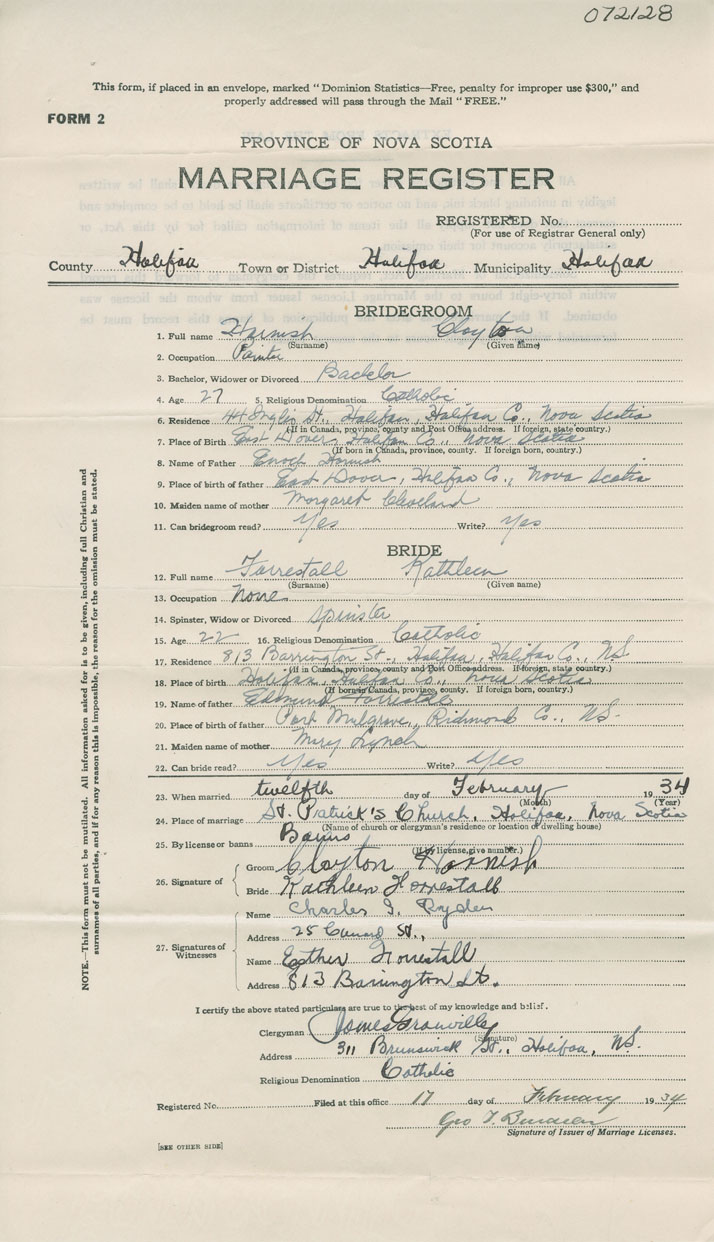 072128
This form, if placed in an envelope, marked "Dominion Statistics—Free, penalty for improper use $300," and
properly addressed will pass through the Mail "FREE."
FORM 2
PROVINCE OF NOVA SCOTIA
MARRIAGE REGISTER
REGISTERED No.
(For use of Registrar General only)
County Halifax Town or District Halifax Municipality Halifax
BRIDEGROOM
1. Full name Harnish Clayton
(Surname) (Given name)
2. Occupation Painter
3. Bachelor, Widower or Divorced Bachelor
4. Age 27 5. Religious Denomination Catholic
6. Residence 44 Inglis St., Halifax, Halifax Co., Nova Scotia
(If in Canada, province, county and Post Office address. If foreign, state country.)
7. Place of Birth East Dover, Halifax Co., Nova Scotia
(If born in Canada, province, county. If foreign born, country.)
8. Name of Father Enoch Harnish
9. Place of birth of father East Dover, Halifax Co., Nova Scotia
10. Maiden name of mother Margaret Cleveland
11. Can bridegroom read? Yes Write? Yes
BRIDE
12. Full name Forrestall Kathleen
(Surname) (Given name)
13. Occupation None
14. Spinster, Widow or Divorced Spinster
15. Age 22 16. Religious Denomination Catholic
17. Residence 813 Barrington St., Halifax, Halifax Co., N.S.
(If in Canada, province, county and Post Office address. If foreign, state country.)
18. Place of birth Halifax, Halifax Co., Nova Scotia
(If born in Canada, province, county. If foreign born, country.)
19. Name of father Edmund Forrestall
20. Place of birth of father Port Mulgrave, Richmond Co., N.S.
21. Maiden name of mother Mary Lynch
22. Can bride read? Yes Write? Yes
23. When married twelfth day of February 1934
(Month) (Year)
24. Place of marriage St. Patrick's Church, Halifax, Nova Scotia
(Name of church or clergyman's residence or location of dwelling house)
25. By license or banns Banns
(If by license, give number.)
26. Signature of Groom Clayton Harnish
Bride Kathleen Forrestall
27. Signatures of Witnesses Name Charles J. Ryder
Address 25 Cunard St.,
Name Esther Forrestall
Address 813 Barrington St.
I certify the above stated particulars are true to the best of my knowledge and belief.
Clergyman James Granville
(Signature)
Address 311 Brunswick St., Halifax, N.S.
Religious Denomination Catholic
Registered No. Filed at this office 17 day of February 1934
Geo T.
Signature of Issuer of Marriage Licenses.
[SEE OTHER SIDE]
NOTE.—This form must not be mutilated. All information asked for is to be given, including full Christian and
surnames of all parties, and if for any reason this is impossible, the reason for the omission must be stated.